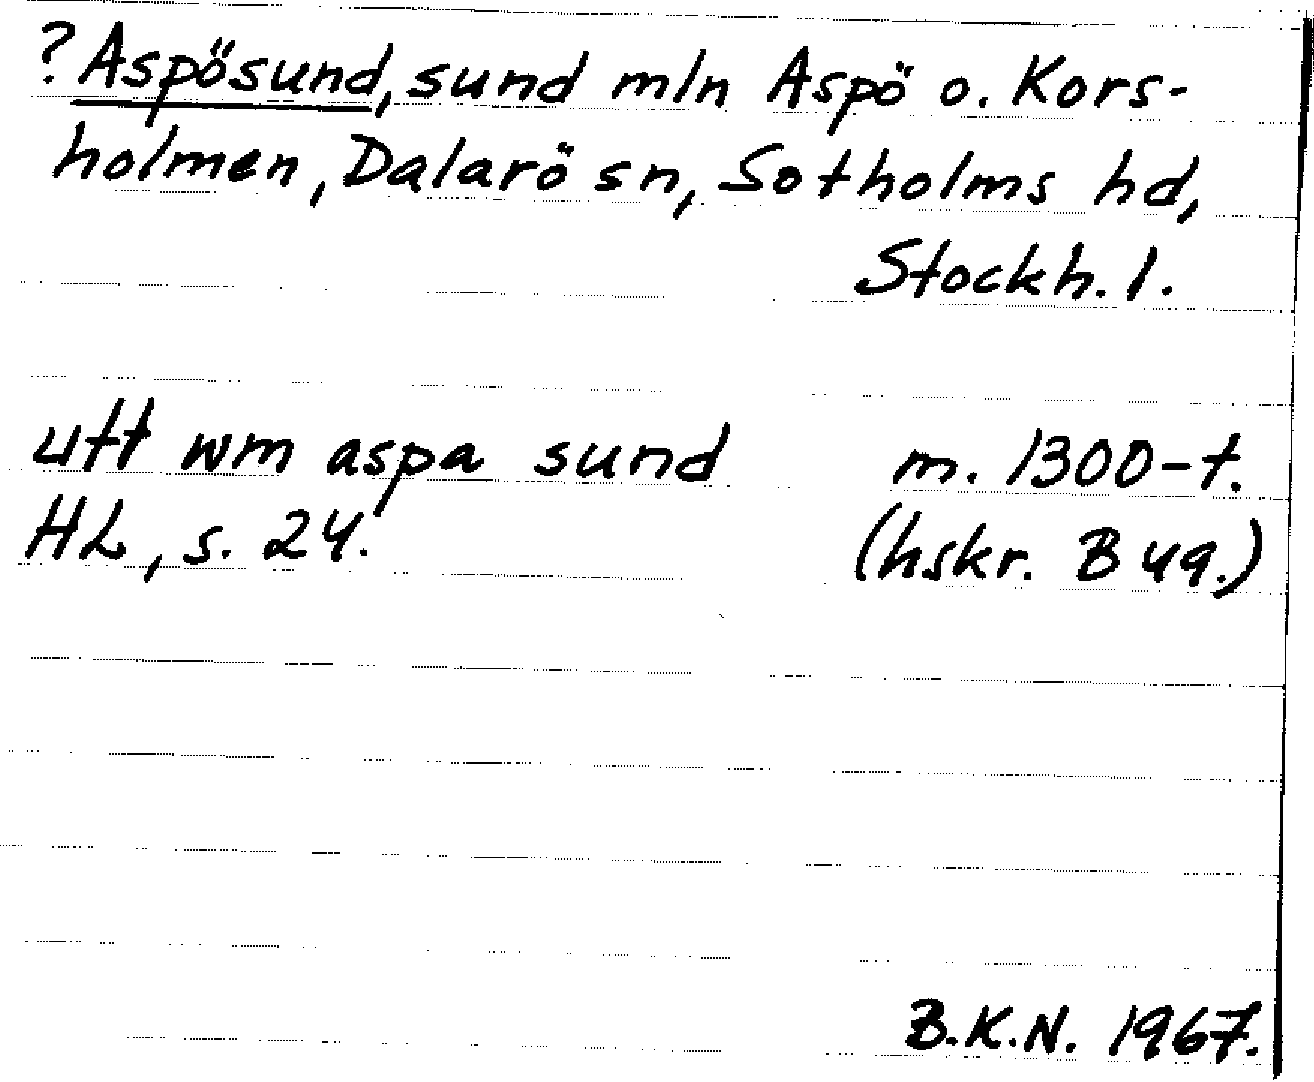 ?Aspösund, sund mln Aspö o. Kors-
holmen, Dalarö sn, Sotholms hd,
Stockh. l.
utt wm aspa sund m. 1300-t.
HL, s. 24. (hskr. B 49.)
B.K.N. 1967.